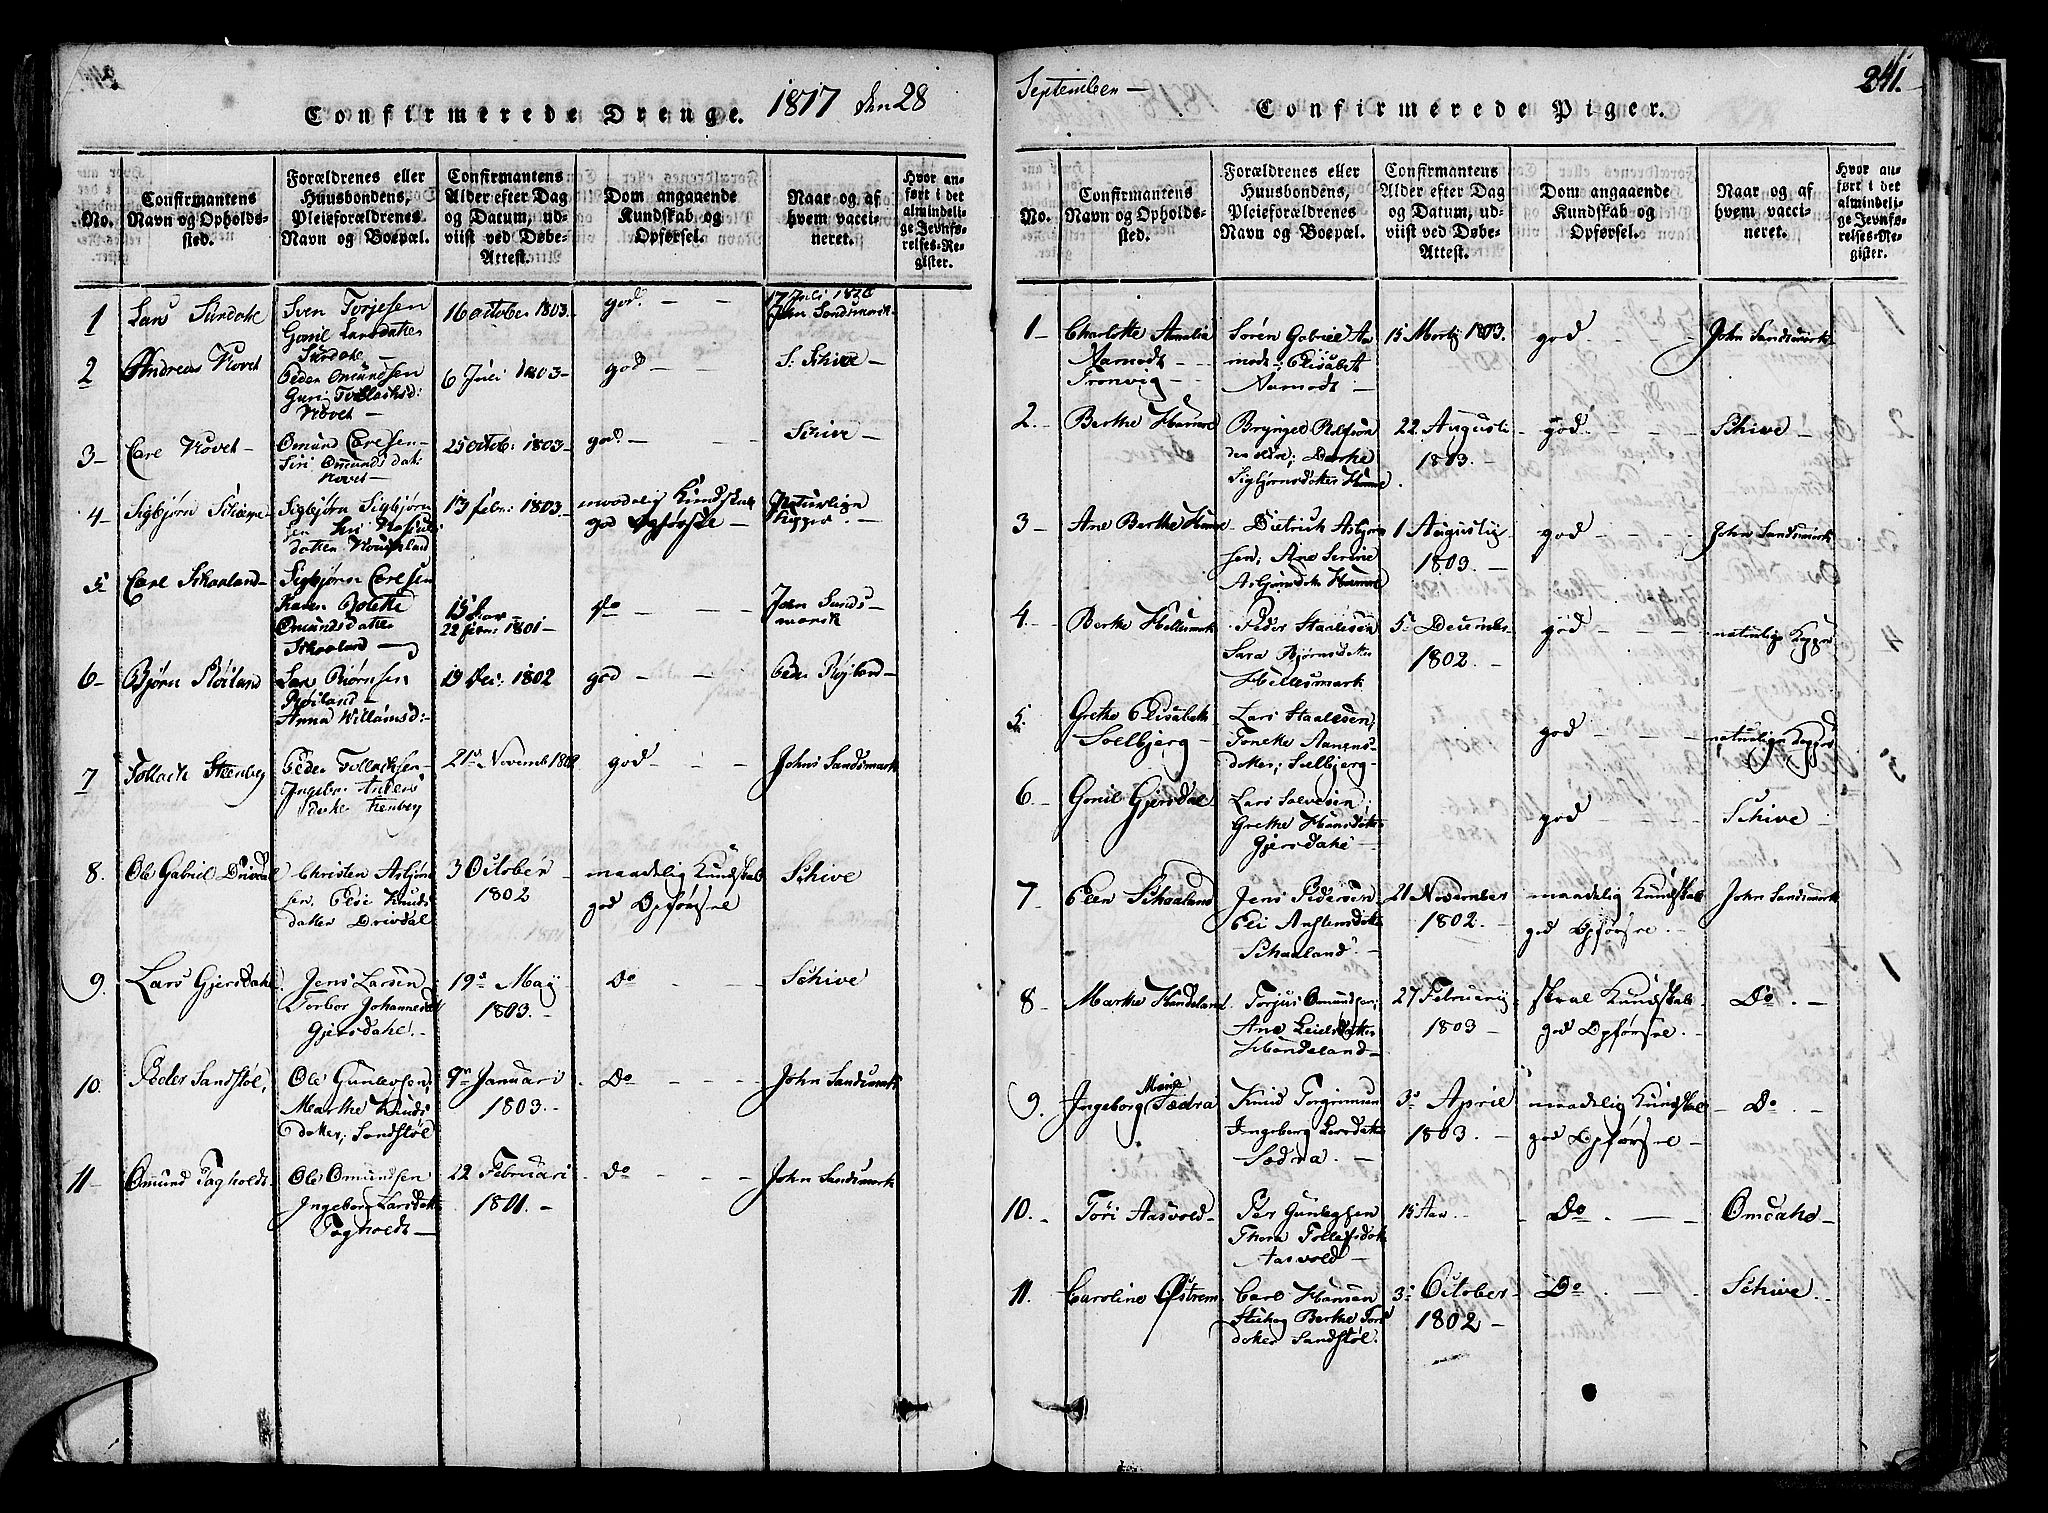 Confirmerede Drenge. 1817 den 28
No.
Confirmantens
Navn og Opholds-
sted.
Forældrenes eller
Huusbondens,
Pleieforældrenes
Navn og Boepæl.
Confirmantens
Alder efter Dag
og Datum, ud-
viist ved Døbe-
Attest.
Dom angaaende
Kundskab og
Opførsel.
Naar og af
hvem vacci-
neret.
Hvor an-
ført i det
almindeli-
ge Jevnfø-
relses-Re-
gister.
1 Lars Surdahl
Sven Torjesen
Gonil Larsdatter
Surdahl
16 October 1803.
god. — —
John Sandsmark
2 Andreas Hovet
Peder Omundsen
Guri Tollachsd:
Hovet —
6 Juli 1803 —
god — —
S. Schive —
3 — Carl Hovet —
Omund Carlsen —
Siri Omunds dat:
Hovet —
25 Octob: 1803 —
god — —
Schive —
4 — Sigbjørn
Sigbjørn Sigbjørn
sen
datter
13 febr: 1803 —
maadelig Kundskab
god Opførsel —
Naturlige
Kopper —
5 Carl Schaaland —
Sigbjørn Carlsen
Karen Bolette
Omundsdatter
Schaaland —
15 Aar
22 febr: 1801 —
do — —
John Sands —
mark
6 — Bjørn Røiland
Lars Biørnsen
Røiland —
Anna Willamsd: —
19 Dec: 1802
god — —
Peder Røjland —
7 Tollach Steenberg
Peder Tollachsen —
Ingebor Anders
datter Steenberg
21de Novemb 1802
god — —
Johns Sandsmark
8. Ole Gabriel Drivdal
Christen Asbjørn
sen. Elsi Knuds
datter Drivdal
3 October
1802
maadelig Kundskab
god Opførsel
Schive
9. Lars Gjersdahl
Jens Larsen
Torbor Johannesd
Gjersdahl. —
19de May
1803. —
Do — —
Schive
10. Peder Sandstøl,
Ole Gunlevsen,
Marthe Knuds
datter; Sandstøl
9de Januari
1803. —
Do — —
John Sandsmark
11 — Omund Tagholdt
Ole Omundsen
Ingebor Larsdatt
Tagholdt —
22 Februari
1801. —
Do — —
John Sandsmark
September —
241.
Confirmerede Piger.
No.
Confirmantens
Navn og Opholds-
sted.
Forældrenes eller
Huusbondens,
Pleieforældrenes
Navn og Boepæl.
Confirmantens
Alder efter Dag
og Datum, ud-
viist ved Døbe-
Attest.
Dom angaaende
Kundskab og
Opførsel.
Naar og af
hvem vacci-
neret.
Hvor an-
ført i det
almindeli-
ge Jevnfø-
relses-Re-
gister.
1 — Charlotte Amalia
Tronvig —
Søren Gabriel
Elisabet
15 Martij 1803.
god — —
John Sandsmark
2. — Berthe Hamre
Brynged Rolfsøn
den eldre; Dorthe
Sigbjørnsdatter Hamre
22 Augusti
1803. —
god — —
Schive —
3 — Ane Berthe Hamre
Dietrich Asbjørn
sen, Ane Serine
Asbjørnsdatter Hamre
1 Augustij
1803. —
god — —
John Sandsmark
4. — Berthe Hellesmark
Peder Staalesen
Sara Bjørnsdatter
Hellesmark
5 December
1802. —
god — —
naturlige Kopper
5. Grethe Elisabeth
Soelbjerg —
Lars Staalesen,
Toneke Aanens-
datter; Soelbjerg —
god — —
naturlige Kopper
6. — Gonil Gjersdal
Lars Salvesen;
Grethe Hansdatter
Gjersdahl —
god — —
Schive —
7 — Elen Schaaland
Jens Pedersen
Eli Anstensdatter
Schaaland —
21 November
1802. —
maadelig Kundskab
god Opførsel. —
John Sandsmark
8 — Marthe Handeland
Torjus Omundsen;
Ane Leielsdatter
Handeland —
27 Februarij
1803 —
sval Kundskab
god Opførsel. —
Do. —
9. Ingeborg Marie Sædra
Knud Torgrimsen
Ingeborg Larsdatter
Sædra. —
3de April
1803. —
maadelig Kundskab
god Opførsel —
Do. —
10. — Tori Aasvold —
Per Gunlegsen
Thora Tollefsdatter
Aasvold —
15 Aar. —
Do. —
Omdahl —
11. Caroline Østrem
Carl Hansen
Berthe Tors
datter Sandstøl.
3de October
1802 —
Do. —
Schive. —